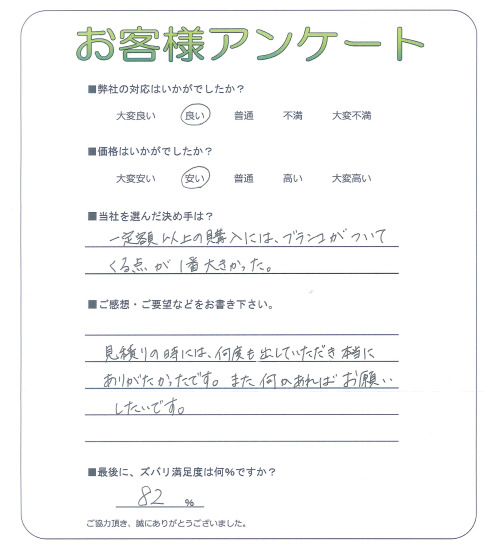 お客様アンケート
■弊社の対応はいかがでしたか?
大変良い 良い 普通 不満 大変不満
■価格はいかがでしたか?
大変安い 安い 普通 高い 大変高い
■当社を選んだ決め手は?
一定額以上の購入には、ブランコがついて
くる点が1番大きかった。
■ご感想・ご要望などをお書き下さい。
見積りの時には、何度も出していただき本当に
ありがたかったです。また何かあればお願い
したいです。
■最後に、ズバリ満足度は何%ですか?
82 %
ご協力頂き、誠にありがとうございました。